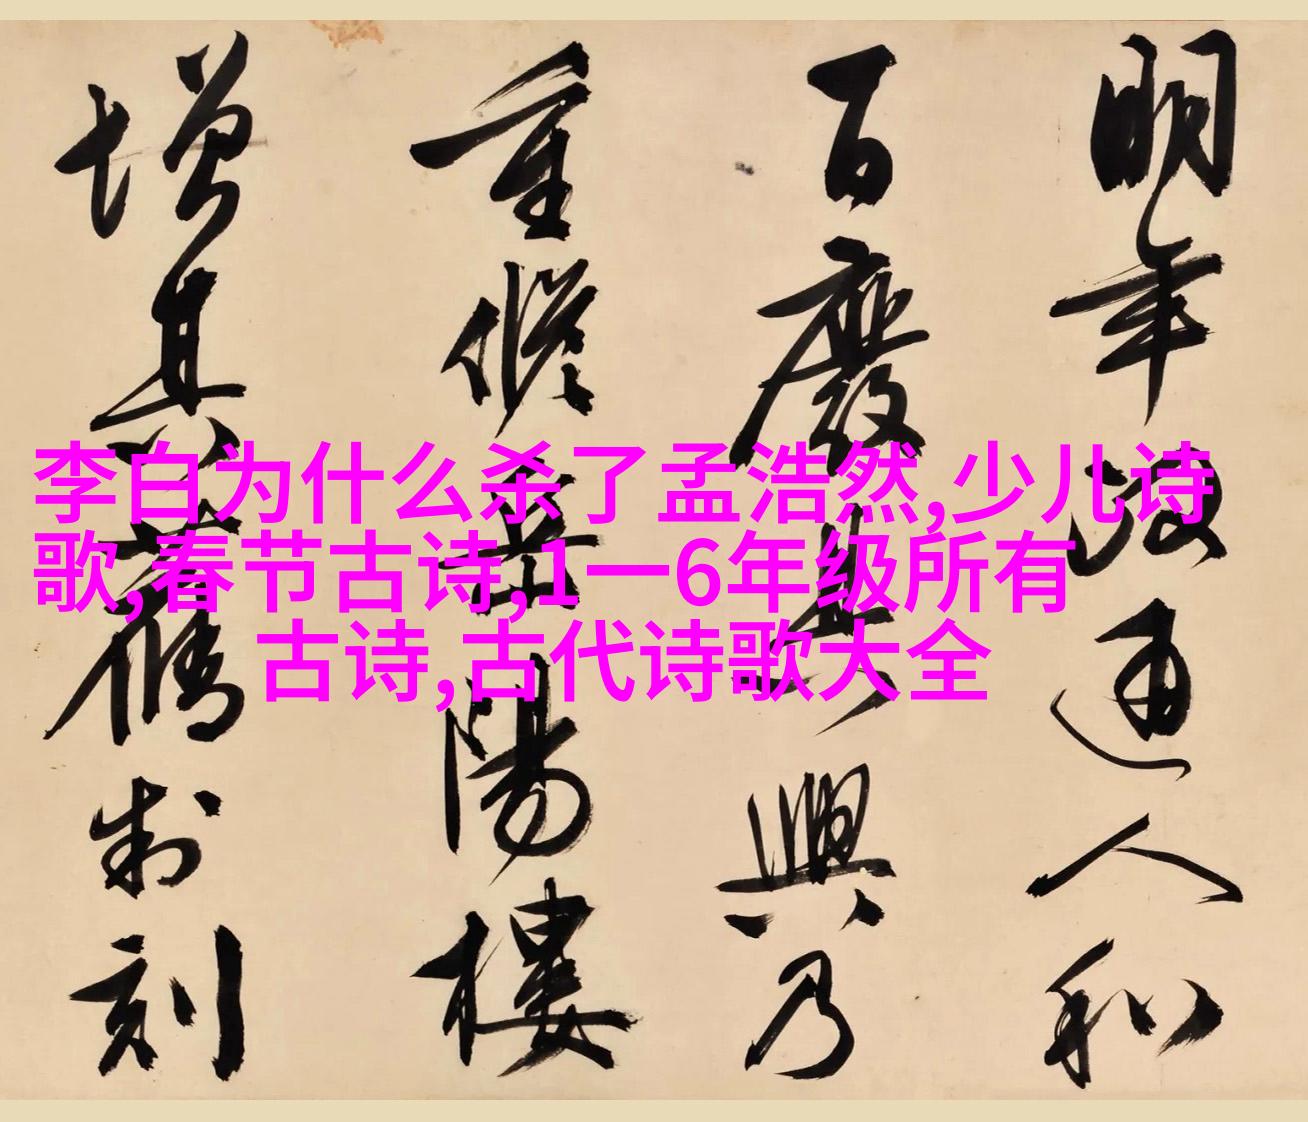 明年政通人和
百廢具興乃
重脩岳陽樓
增其舊制刻
李白为什么杀了孟浩然,少儿诗
歌,春节古诗,1一6年级所有
古诗,古代诗歌大全